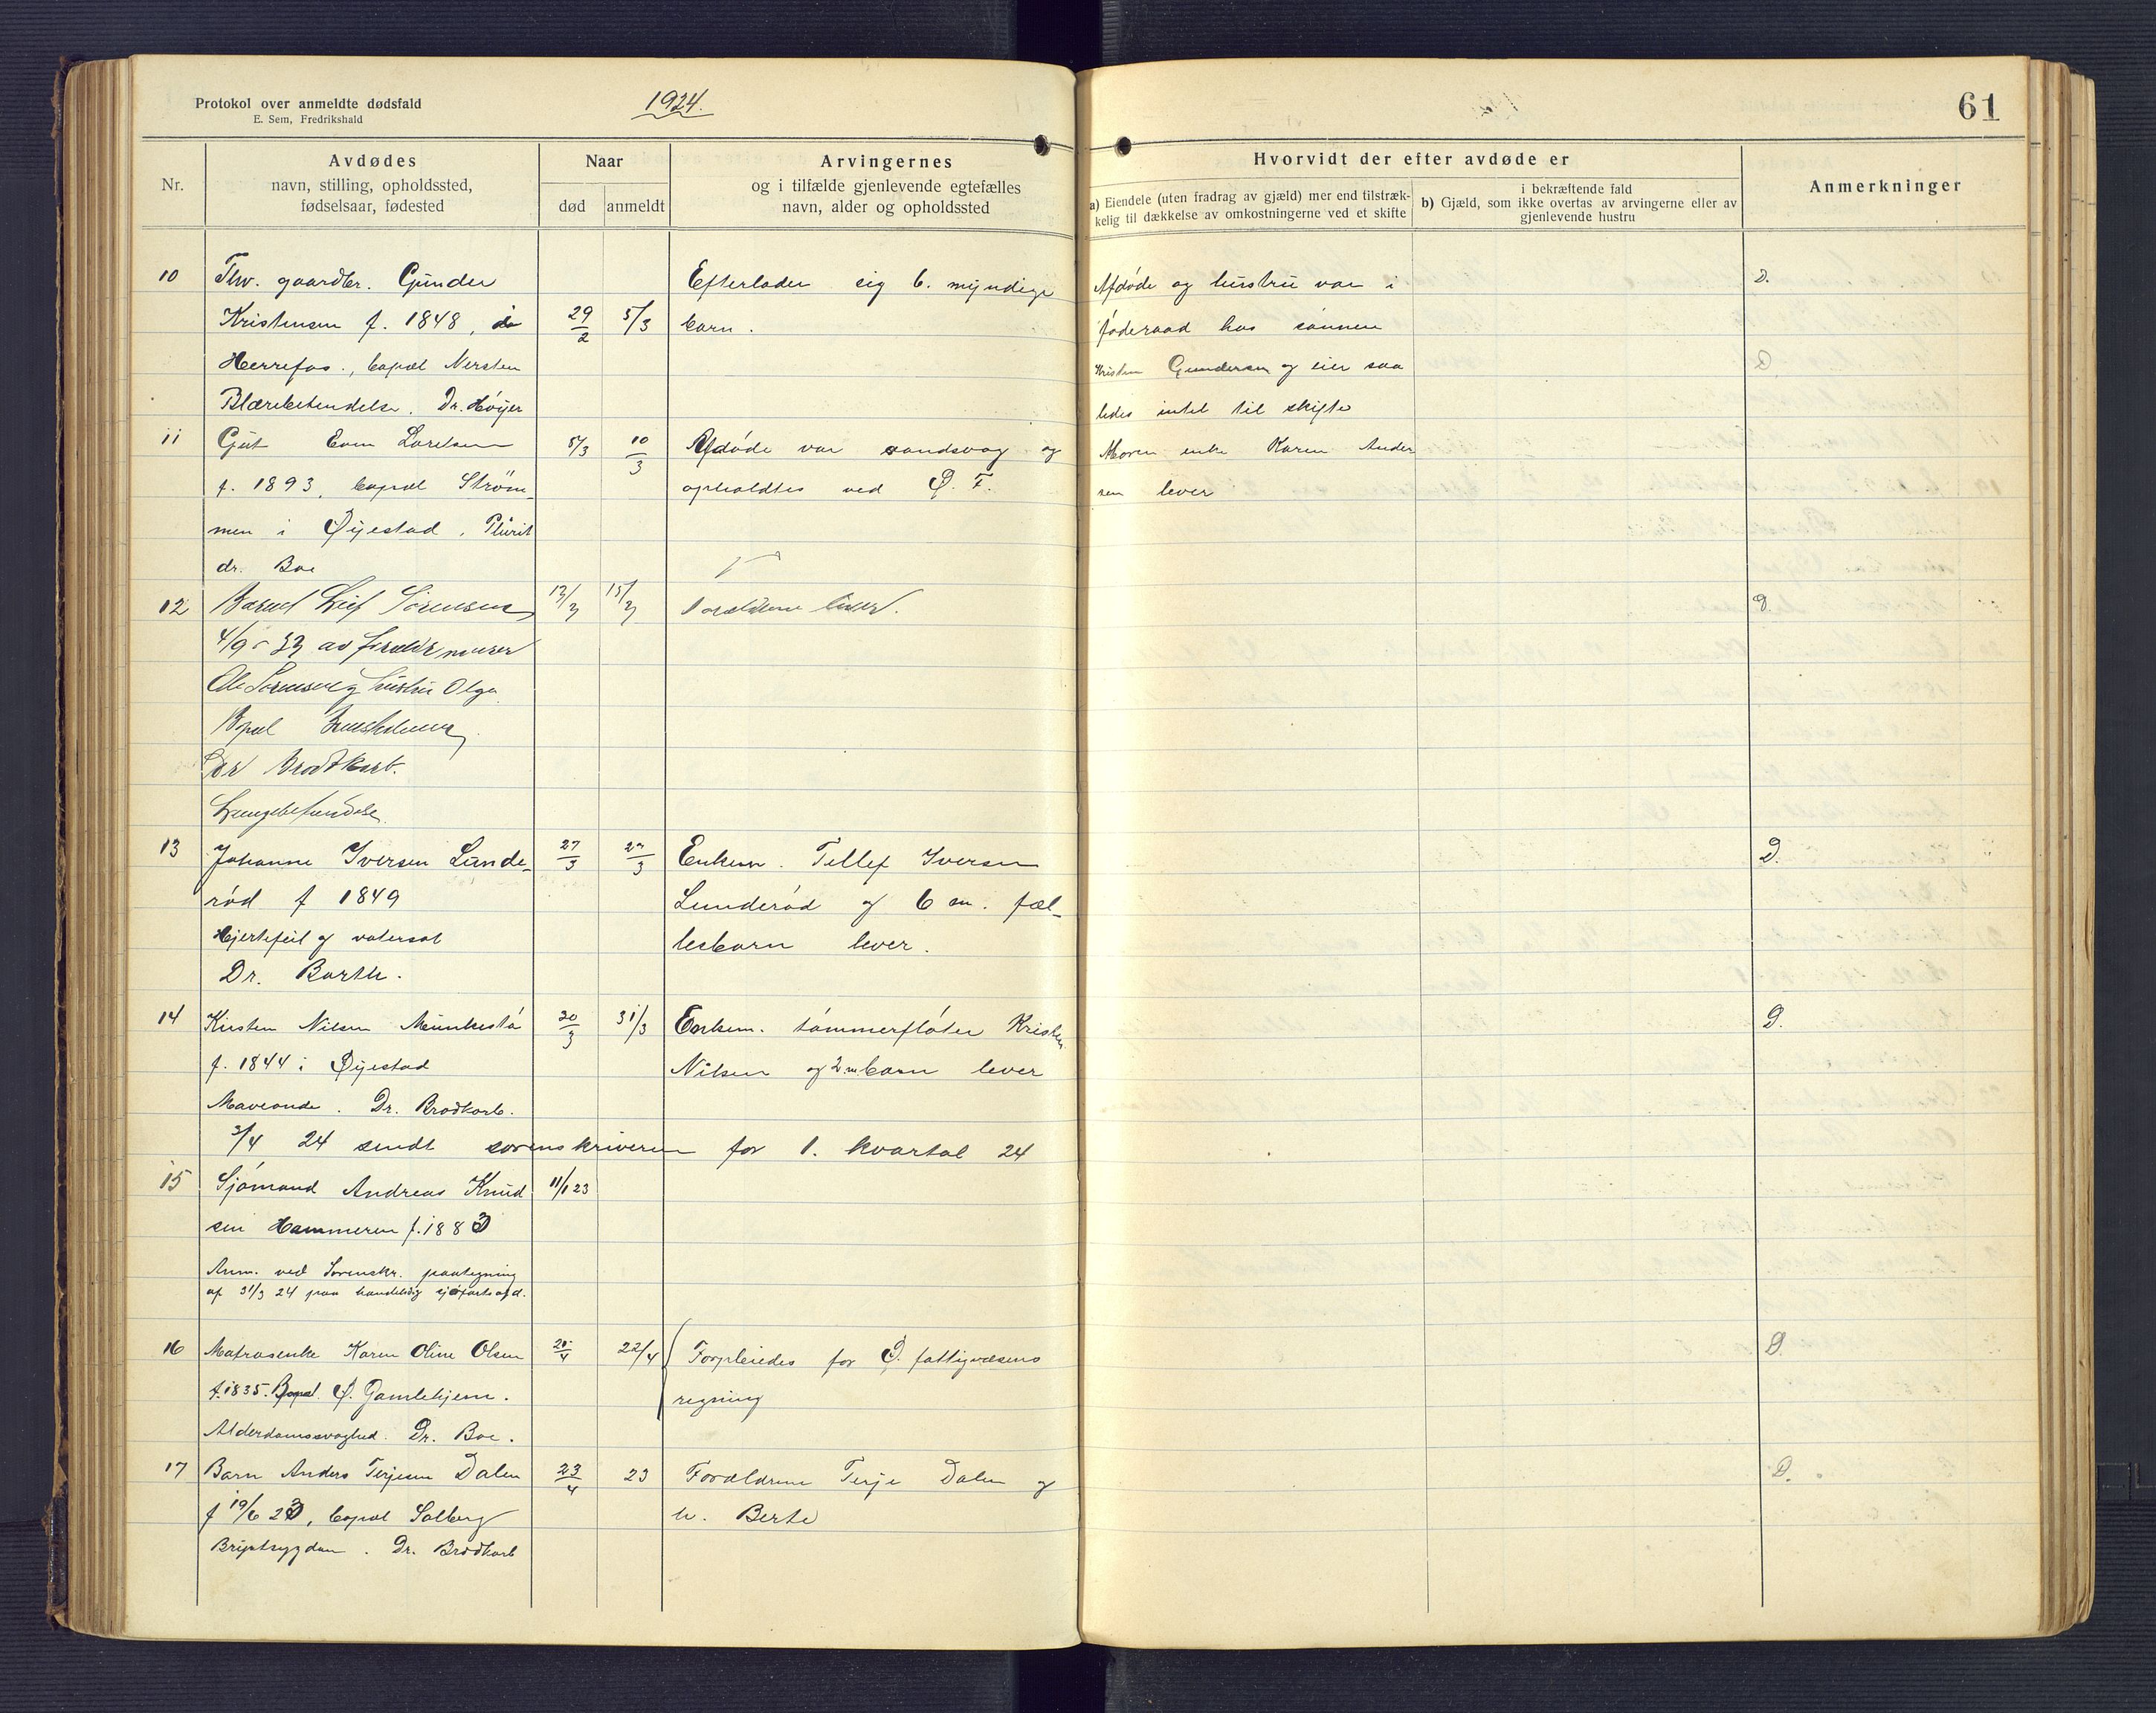 Protokol over anmeldte dødsfald
E. Sem, Fredrikshald
1924.
61
Nr.
Avdødes
navn, stilling, opholdssted,
fødselsaar, fødested
Naar
død
anmeldt
Arvingernes
og i tilfælde gjenlevende egtefælles
navn, alder og opholdssted
Hvorvidt der efter avdøde er
a) Eiendele (uten fradrag av gjæld) mer end tilstræk-
kelig til dækkelse av omkostningerne ved et skifte
i bekræftende fald
b) Gjæld, som ikke overtas av arvingerne eller av
gjenlevende hustru
Anmerkninger
10 Fhv. gaardbr. Gunder Efterlader sig 6. myndige Afdøde og hustru var i D.
Kristensen f. 1848, 29/2 5/3 barn. føderaad hos sønnen
Herrefos., bopæl Nersten Kristen Gundersen og eier saa
Blærebetendelse. Dr. Høyer ledes intet til skifte
11 Gut Lorentsen 5/3 10/3 Afdøde var aandsvag og Moren enke Karen Ander
f. 1893, bopæl Strøm- opholdtes ved Ø. F. sen lever
men i Øyestad. Plurit
dr. Boe
12 Barnet Leif Sørensen 13/3 15/3 Forældrene lever. D.
4/9 - 23 av forældre murer
Ole Sørensen og hustru Olga
Bopæl
Dr Brodtkorb.
Lungebetændelse
13 Johanne Iversen Lunde- 27/3 27/3 Enkem. Tellef Iversen D.
rød f 1849 Lunderød og 6 m. fæl-
Hjertefeil og vatersot lesbarn lever.
Dr. Barth.
14 Kirsten Nilsen 30/3 31/3 Enkem. tømmerfløter Kristen D.
f. 1844 i Øyestad Nilsen og 2 m barn lever
Maveonde. Dr. Brodkorb.
3/4 24 sendt sorenskriveren for 1. kvartal 24
15 Sjømand Andreas Knud 11/1 23
sen Hammeren f. 1883
Anm. ved Sorenskr. paategning
af 31/3 24 paa handels og sjøfartsafd.
16 Matrosenke Karen Oline Olsen 22/4 Forpleiedes for Ø. fattigvæsens D.
f. 1835. Bopæl. Ø. Gamlehjem. regning
Alderdomssvaghed. Dr. Boe.
17 Barn Anders Terjesen Dalen 23/4 23 Forældrene Terje Dalen og D.
f 19/6 23, bopæl Solberg h. Berte
Brystsygdom. Dr. Brodkorb